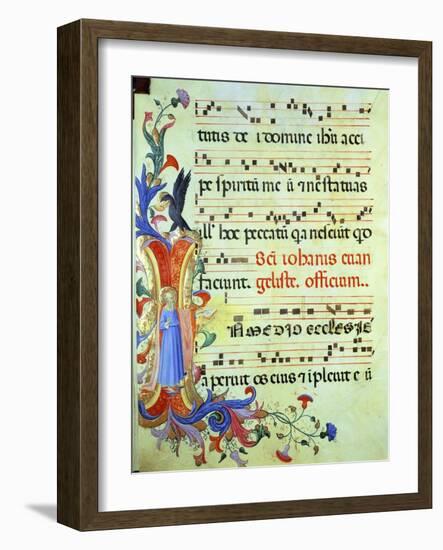 tutis de i domine ihu acci
pe spiritū me ū & ne statuas
ill hoc peccatū qa nesciūt qͥd
Sci iohanis euan
faciunt. geliste. officium..
N MEDIO ECCLESIE
aperuit os eius & i pleuit e ū